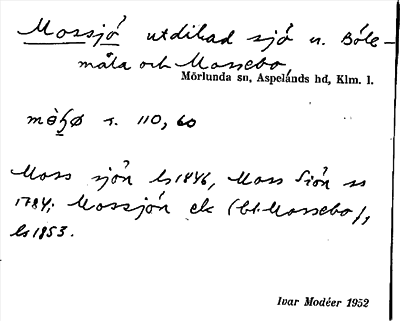 Mossjö utdikad sjö n. Böle-
måla och Mossebo,
Mörlunda sn, Aspelands hd, Klm. l.
s. 110, 60
Moss sjön ls 1846, Moss Siön ss
1784; Mossjön ek (bl. Mossebo),
ls 1853.
Ivar Modéer 1952